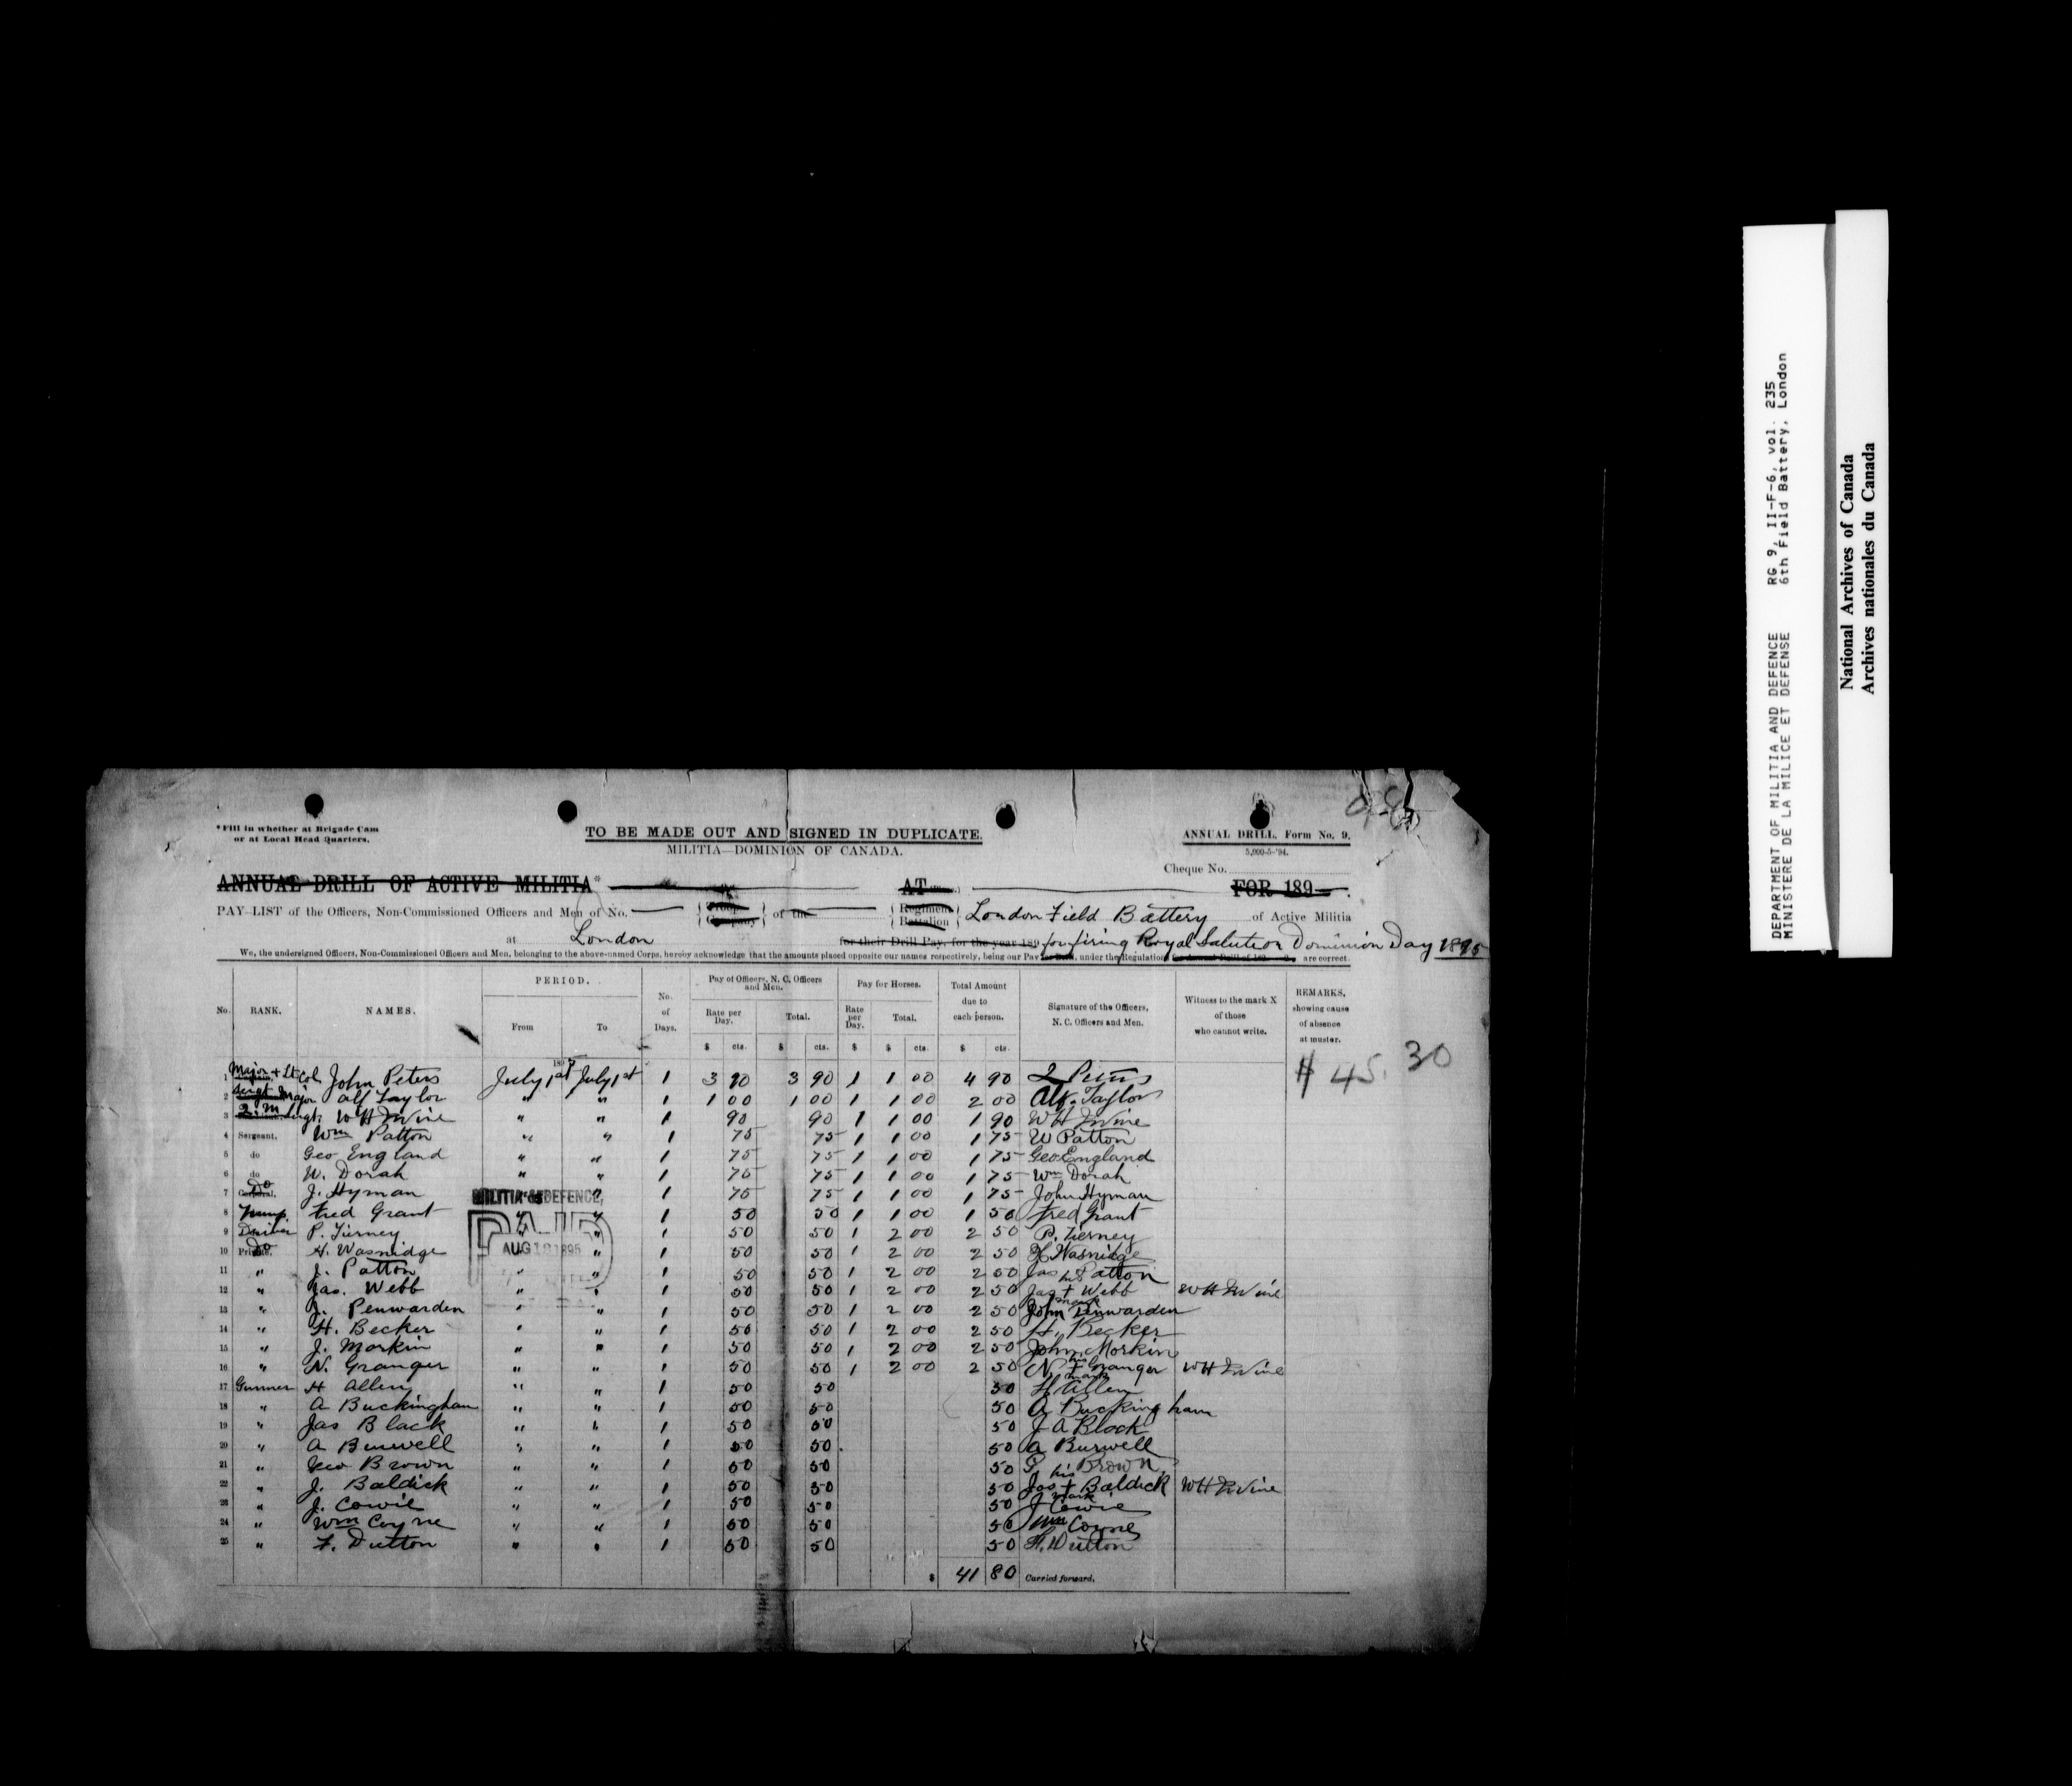 *Fill in whether at Brigade Cam
or at Local Head Quarters.
TO BE MADE OUT AND SIGNED IN DUPLICATE.
MILITIA—DOMINION OF CANADA.
ANNUAL DRILL, Form No. 9.
5,000-5-'94.
Cheque No.
ANNUAL DRILL OF ACTIVE MILITIA* AT FOR 189
PAY-LIST of the Officers, Non-Commissioned Officers and Men of No. Troop Company of the Regiment Battalion London Field Battery of Active Militia
at London for their Drill Pay, for the year 189 for firing Royal Salute on Dominion Day 1895
We, the undersigned Officers, Non-Commissioned Officers and Men, belonging to the above-named Corps, hereby acknowledge that the amounts placed opposite our names respectively, being our Pay under the Regulations are correct.
No. RANK. NAMES. PERIOD. From To No. of Days. Pay of Officers, N. C. Officers and Men. Rate per Day. Total. Pay for Horses. Rate per Day. Total. Total Amount due to each person. Signature of the Officers, N. C. Officers and Men. Witness to the mark X of those who cannot write. REMARKS, showing cause of absence at muster.
$ cts. $ cts. $ $ cts. $ cts.
$ 45.30
1 Major & Lt Col John Peters July 1st July 1st 1 3 90 3 90 1 1 00 4 90 Peters
2 Sergt Major Alf Taylor " " 1 1 00 1 00 1 1 00 2 00 Alf. Taylor
3 Q. M. Sergt W H Irvine " " 1 90 90 1 1 00 1 90 W H Irvine
4 Sergeant, Wm Patton " " 1 75 75 1 1 00 1 75 W Patton
5 do Geo England " " 1 75 75 1 1 00 1 75 Geo England
6 do W. Dorah " " 1 75 75 1 1 00 1 75 Wm Dorah
7 Corporal, Do J. Hyman " " 1 75 75 1 1 00 1 75 John Hyman
8 Trump. Fred Grant " " 1 50 50 1 1 00 1 50 Fred Grant
9 Driver P. Tierney " " 1 50 50 1 2 00 2 50 P. Tierney
10 Private, Do H. Wasnidge " " 1 50 50 1 2 00 2 50 H Wasnidge
11 " J. Patton " " 1 50 50 1 2 00 2 50 Jas Patton
12 " Jas. Webb " " 1 50 50 1 2 00 2 50 Jas his + mark Webb W H Irvine
13 " J. Penwarden " " 1 50 50 1 2 00 2 50 John Penwarden
14 " H. Becker " " 1 50 50 1 2 00 2 50 H. Becker
15 " J. Morkin " " 1 50 50 1 2 00 2 50 John Morkin
16 " N. Granger " " 1 50 50 1 2 00 2 50 N his + mark Granger W H Irvine
17 Gunner H Allen " " 1 50 50 50 H Allen
18 " A Buckingham " " 1 50 50 50 A Buckingham
19 " Jas Black " " 1 50 50 50 J A Black
20 " A Burwell " " 1 50 50 50 A Burwell
21 " Geo Brown " " 1 50 50 50 G Brown
22 " J. Baldick " " 1 50 50 50 Jas his + mark Baldick W H Irvine
23 " J. Cowie " " 1 50 50 50 J Cowie
24 " Wm Coyne " " 1 50 50 50 Wm Coyne
25 " F. Dutton " " 1 50 50 50 F. Dutton
$ 41 80 Carried forward.
MILITIA & DEFENCE,
PAID
AUG 12 1895
DEPARTMENT OF MILITIA AND DEFENCE RG 9, II-F-6, vol. 235
MINISTERE DE LA MILICE ET DEFENSE 6th Field Battery, London
National Archives of Canada
Archives nationales du Canada